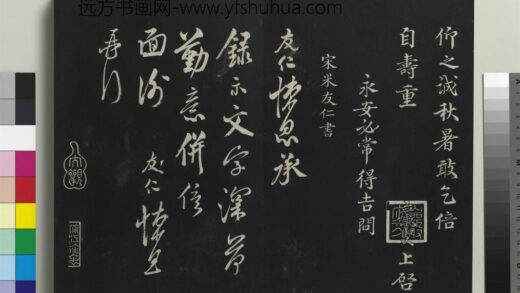 远方书画网-www.yfshuhua.com
仰之诚秋暑敢乞倍
自壽重
永安必常得吉問
上啓
宋米友仁書
友仁悚息承
録示文字深荷
勤意併俟
面謝 友仁 悚息
再行